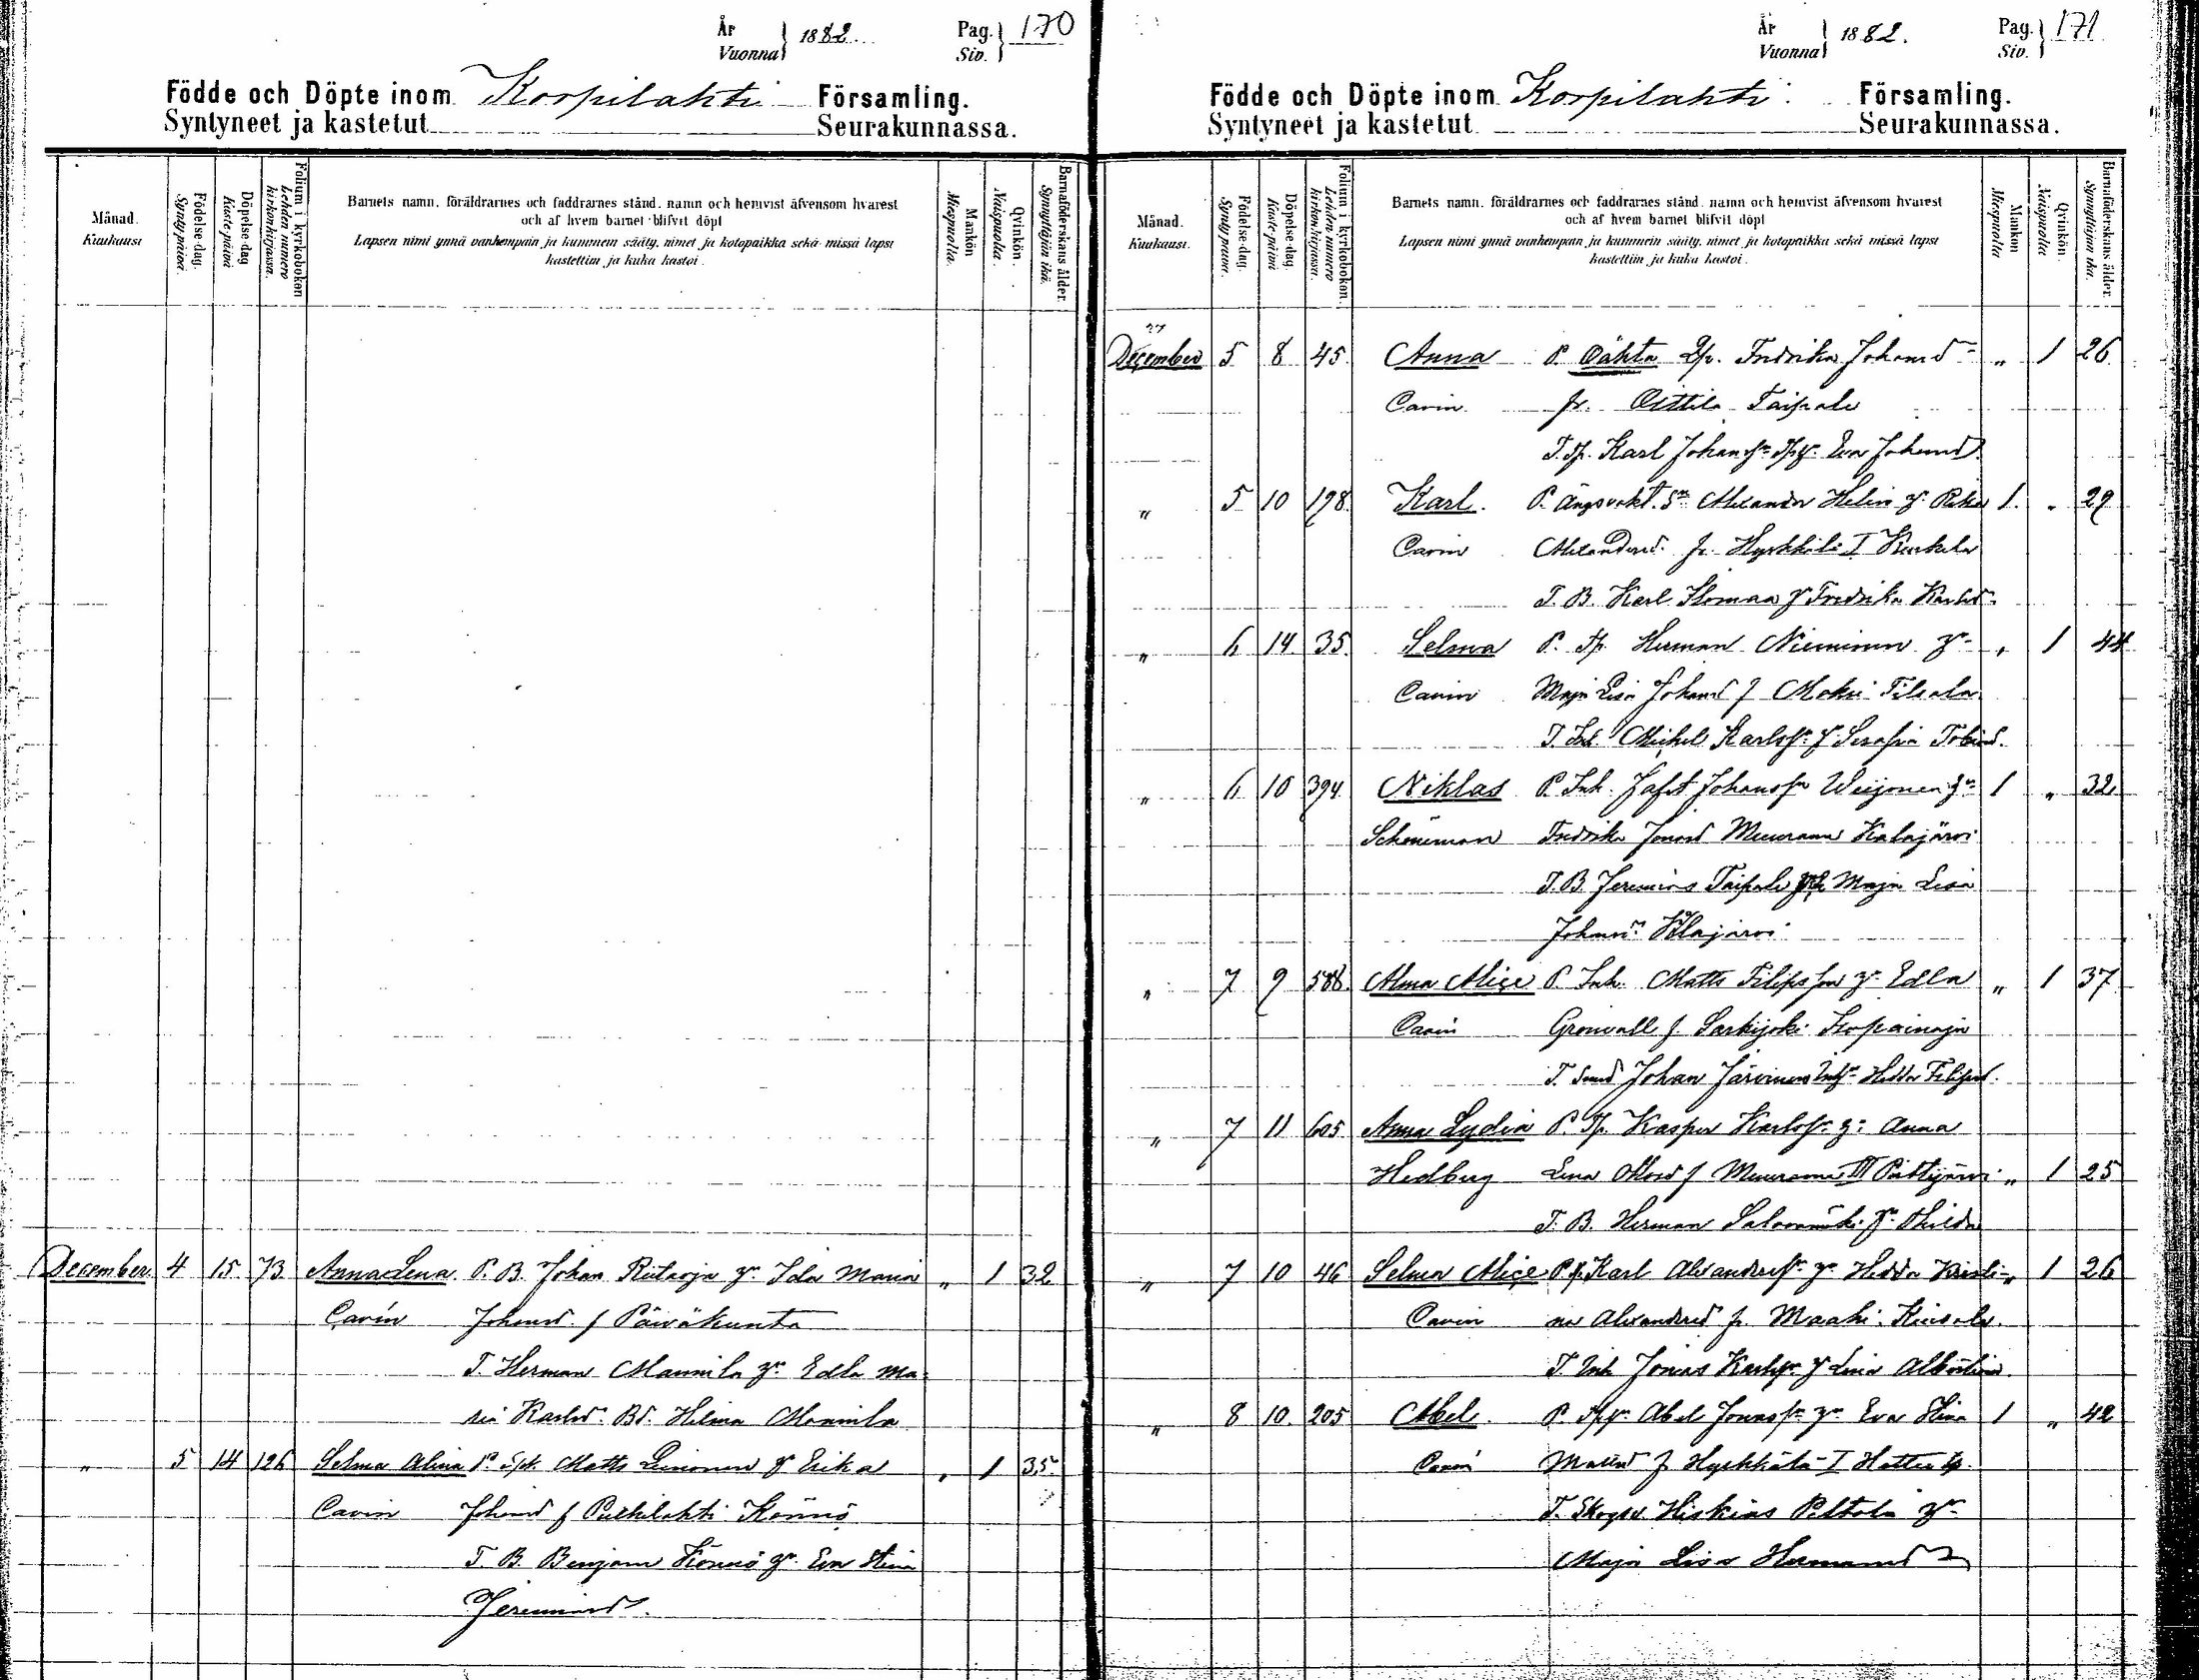 År
Vuonna } 1882.
Pag.
Siv. } 170
Födde och Döpte inom Korpilahti Församling.
Syntyneet ja kastetut Seurakunnassa.
Månad.
Kuukausi
Födelse-dag.
Synty-päivä.
Döpelse-dag
Kaste-päivä
Folium i kyrkoboken
Lehden numero
kirkonkirjassa.
Barnets namn, föräldrarnes och faddrarnes stånd, namn och hemvist äfvensom hvarest
och af hvem barnet blifvit döpt
Lapsen nimi ynnä vanhempain ja kummein sääty, nimet ja kotopaikka sekä missä lapsi
kastettiin ja kuka kastoi.
Mankön
Miespuolia.
Qvinkön.
Naispuolia.
Barnaföderskans ålder.
Synnyttäjän ikä.
December 4 15 73 Anna Lena P. B. Johan Riitaoja hr Ida Maria " 1 32
Carin Johansd. f Päiväkunta
T. Herman Mannila hr Edla Ma-
ria Karlsd. Bd. Helma Mannila
" 5 14 126 Selma Alina P. Matts Leinonen hr Erika " 1 35
Carin Johansd f Putkilahti Könnö
T. B. Benjam Könnö hr Eva Stina
Jeremiasd.
År
Vuonna } 1882.
Pag.
Siv. } 171
Födde och Döpte inom Korpilahti Församling.
Syntyneet ja kastetut Seurakunnassa.
Månad.
Kuukausi.
Födelse-dag.
Synty-päivä.
Döpelse-dag.
Kaste-päivä
Folium i kyrkoboken.
Lehden numero
kirkonkirjassa.
Barnets namn, föräldrarnes och faddrarnes stånd, namn och hemvist äfvensom hvarest
och af hvem barnet blifvit döpt
Lapsen nimi ynnä vanhempain ja kummein sääty, nimet ja kotopaikka sekä missä lapsi
kastettiin ja kuka kastoi.
Mankön
Miespuolia
Qvinkön.
Naispuolia
Barnaföderskans ålder.
Synnyttäjän ikä.
December 5 8 45. Anna P. Oähta Fredrika Johansd " 1 26
Carin fr. Oittila Taipale
T. Karl Johanss. Eva Johansd.
" 5 10 198. Karl. P. Alexander Helin hr Rika 1. " 29
Carin Alexandersd. fr. Hyrkkälä I Kurkela
T. B. Karl Homaa hr Fredrika Karlsd.
" 6 14 35. Selma P. Herman Nieminen hr " 1 44
Carin Maja Lisa Johansd f Moksi Tilsala
T. Inh. Michel Karlss. hr Serafia Tobiasd.
" 6 10 394 Niklas P. Inh. Jafet Johansson Weijonen hr 1 " 32
Scheneman Fredrika Jonasd Muurame Kalajärvi
T. B. Jeremias Taipale Maja Lisa
Johansd. Kalajärvi
" 7 9 588. Alma Alice P. Inh. Matts Filipsson hr Edla " 1 37
Carin Gronvall f. Sarkijoki Isopainaja
T. Johan Järvinen Hedda Filipsd.
" 7 11 605 Anna Lydia P. Kasper Karlss. hr Anna
Hedberg Lena Ottosd f Muurame III Päättjärvi " 1 25
T. B. Herman Salomäki hr
" 7 10 46 Selma Alice P. Karl Alexanderss. hr Hedda Kristi- " 1 26
Carin na Alexandersd fr. Maahi. Kinsala.
T Inh Jonas Karlss. Lina Albertina.
" 8 10. 205 Abel. P. Abel Jonass. hr Eva Stina 1 " 42
Carin Mattsd f Hyrkkälä I
T. Hiskias Peltola hr
Maja Lisa Hermansd